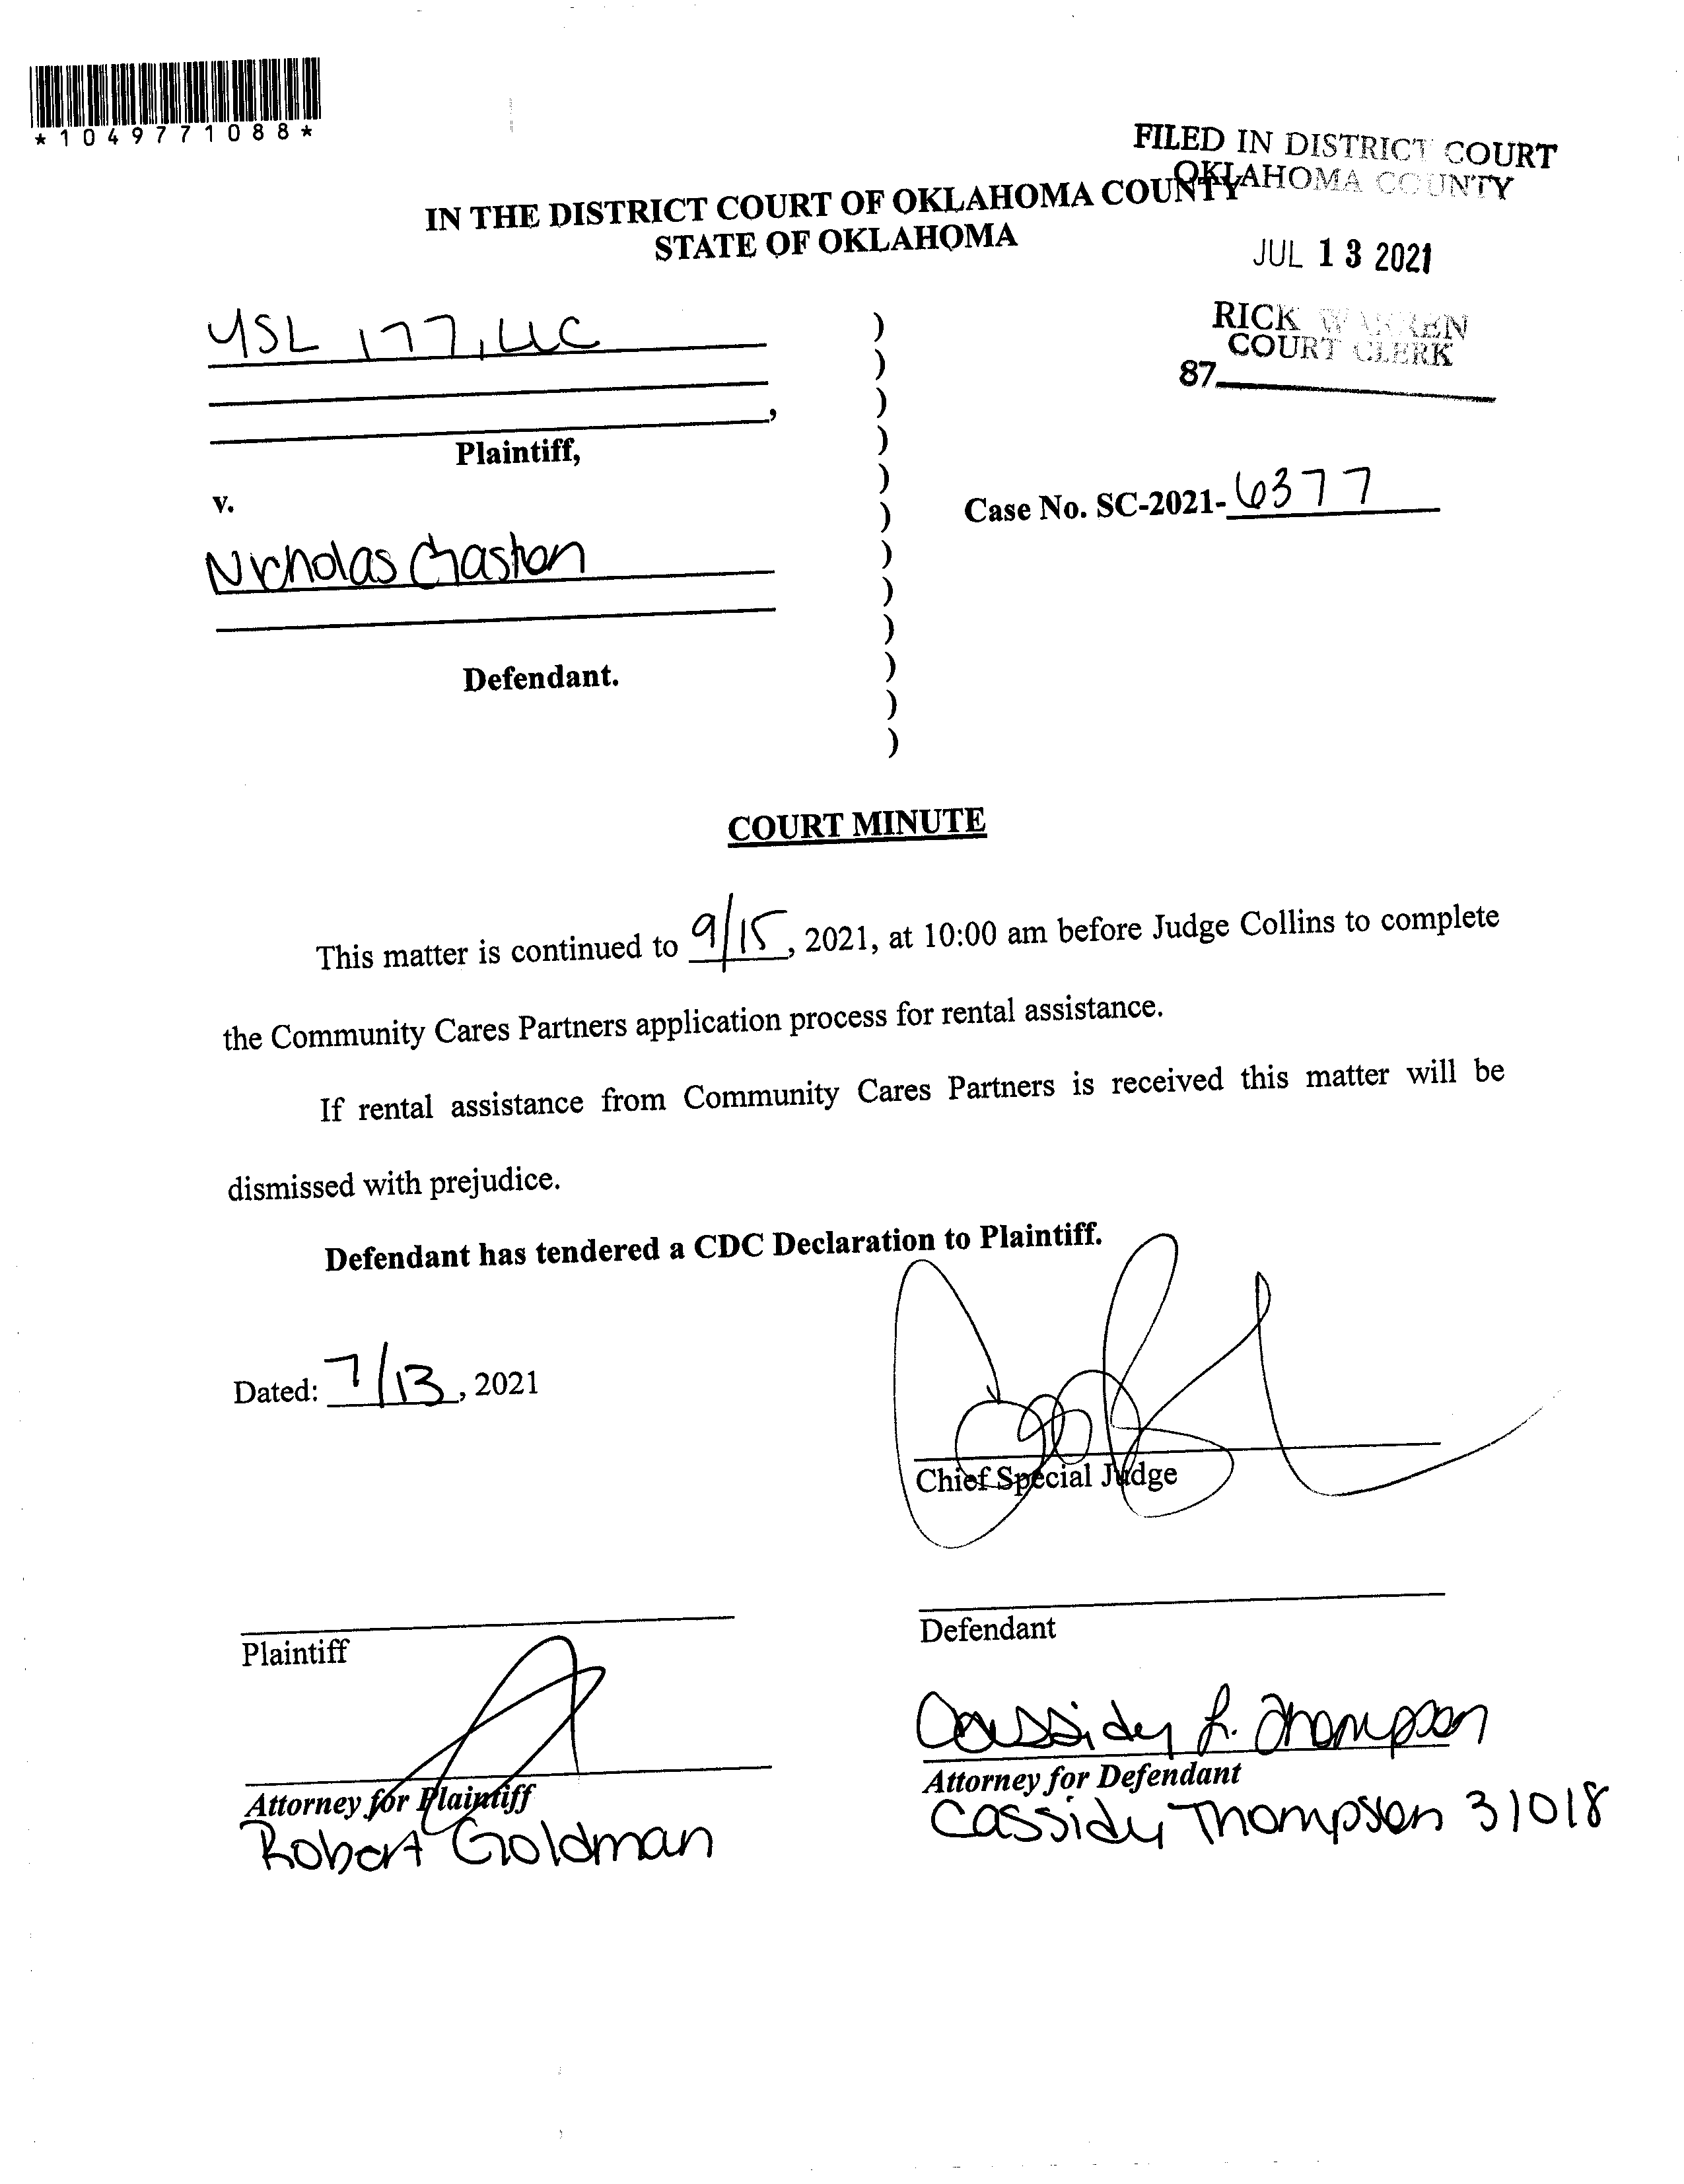 *1049771088*
FILED IN DISTRICT COURT
OKLAHOMA COUNTY
IN THE DISTRICT COURT OF OKLAHOMA COUNTY
STATE OF OKLAHOMA
JUL 13 2021
RICK WARREN
COURT CLERK
87
YSL 177, LLC
,
Plaintiff,
v.
Case No. SC-2021-6377
Nicholas Chaston
Defendant.
)
)
)
)
)
)
)
)
)
)
)
)
COURT MINUTE
This matter is continued to 9/15, 2021, at 10:00 am before Judge Collins to complete
the Community Cares Partners application process for rental assistance.
If rental assistance from Community Cares Partners is received this matter will be
dismissed with prejudice.
Defendant has tendered a CDC Declaration to Plaintiff.
Dated: 7/13, 2021
Chief Special Judge
Plaintiff
Defendant
Cassidy L. Thompson
Attorney for Plaintiff
Robert Goldman
Attorney for Defendant
Cassidy Thompson 31018